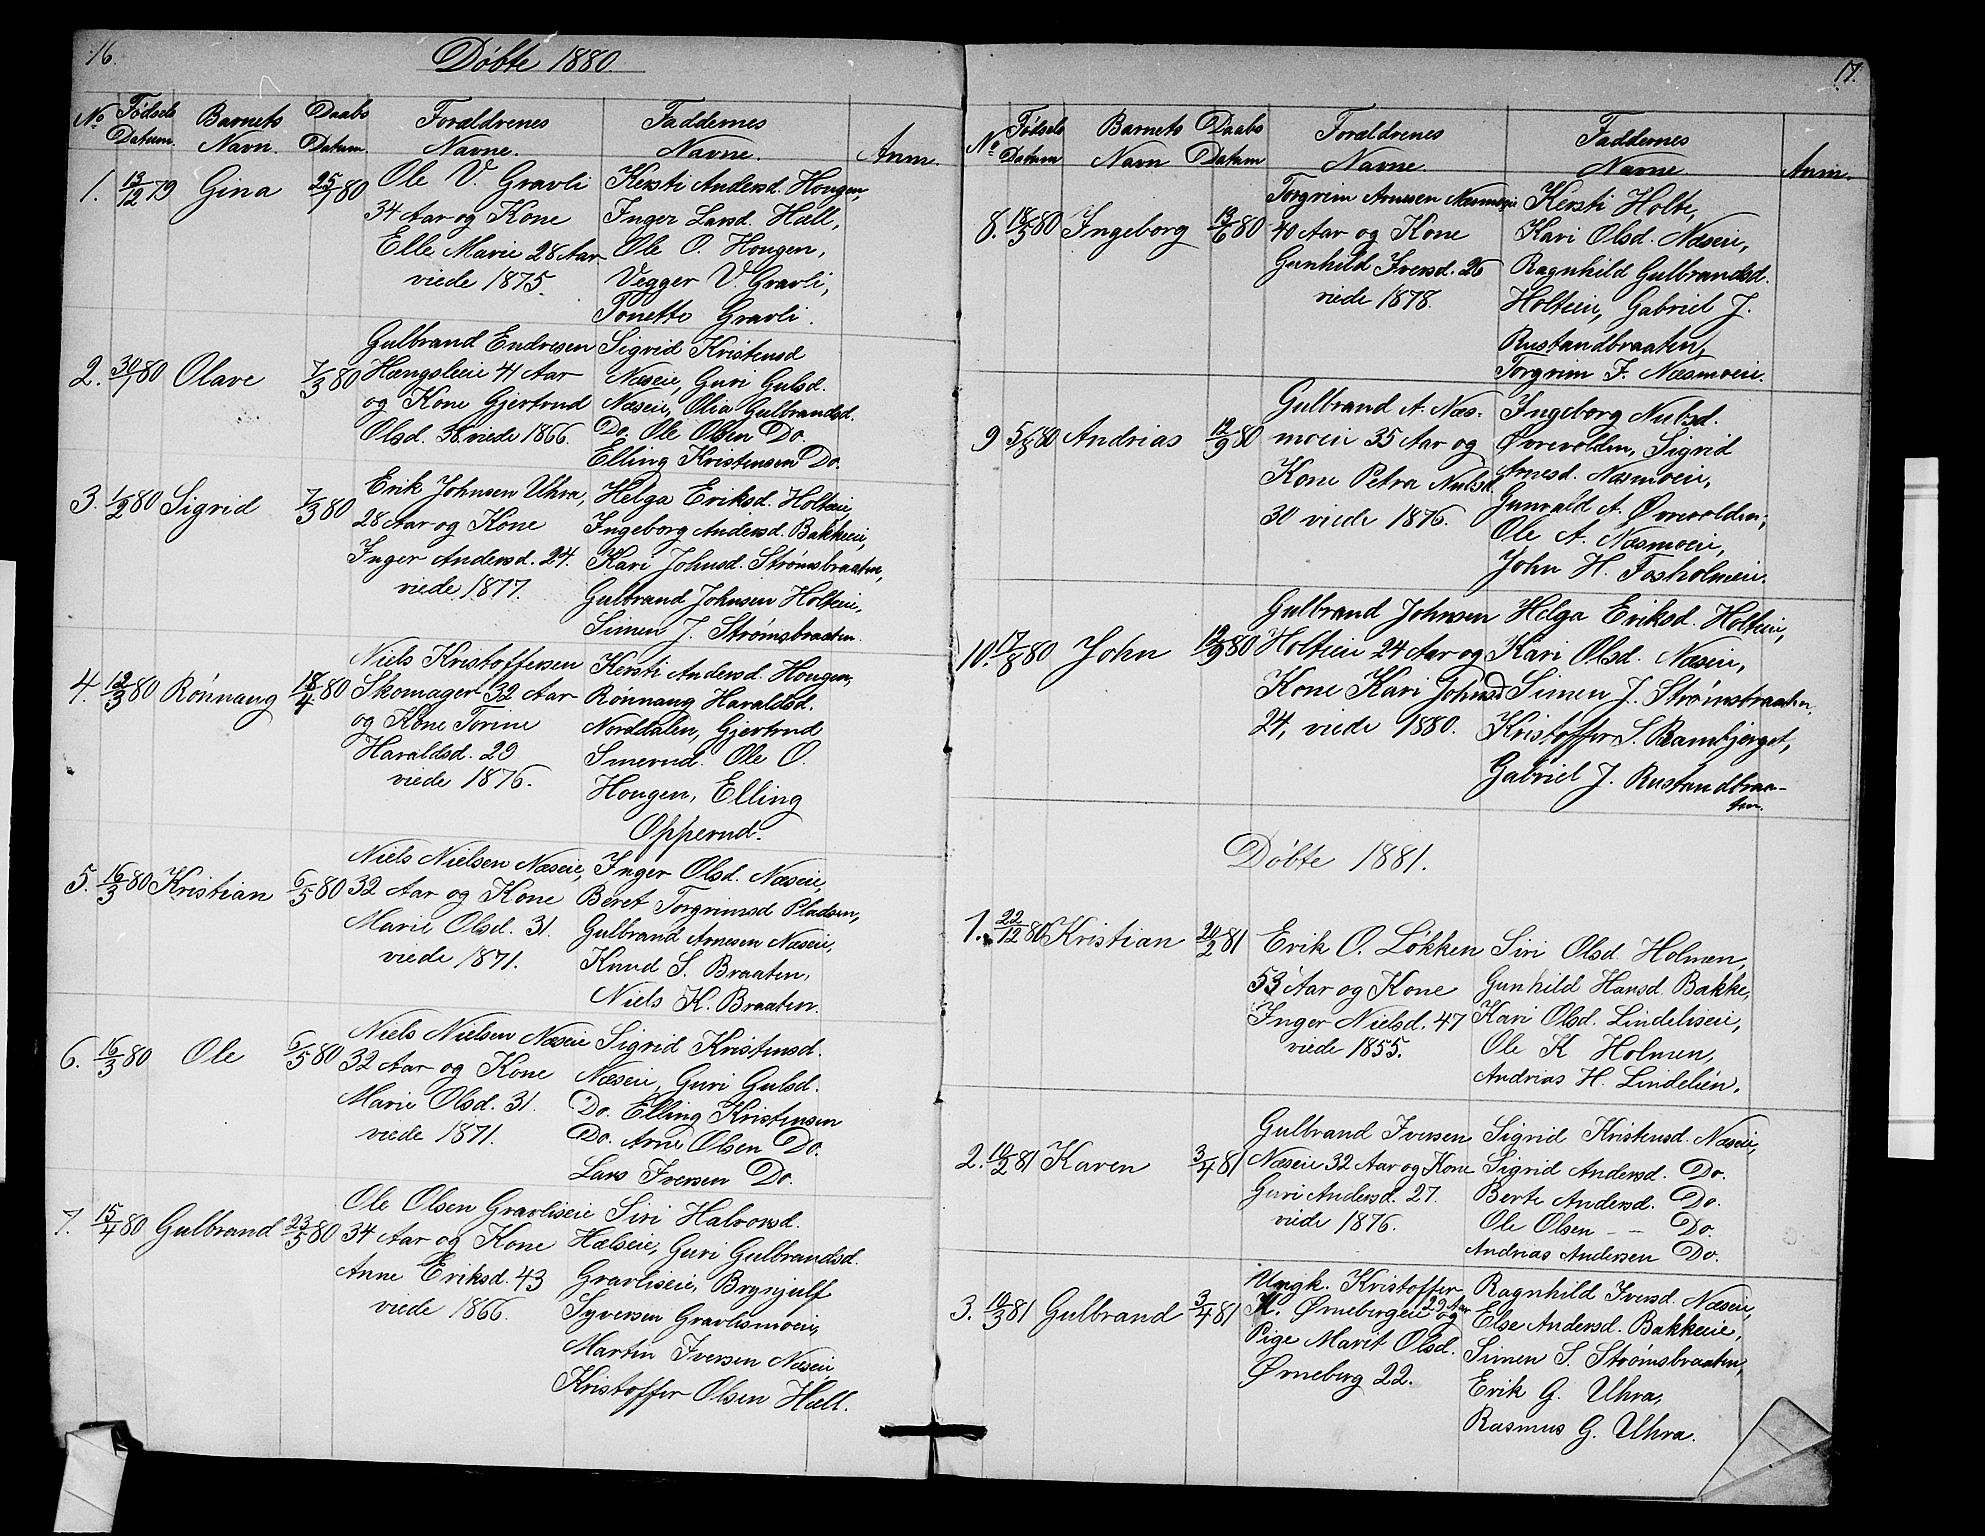 16.
Döbte 1880.
No Fødsels Datum. Barnets Navn. Daabs Datum. Forældrenes Navne. Faddernes Navne. Anm.
1. 13/12 79 Gina 25/1 80
Ole V. Gravli
34 Aar og Kone
Elle Marie 28 Aar
viede 1875.
Kersti Andersd. Hougen,
Inger Larsd. Hæll,
Ole O. Hougen,
Vegger V. Gravli,
Tonette Gravli.
2. 30/1 80 Olave 7/3 80
Gulbrand Endresen
Hængsleeie 41 Aar
og Kone Gjertrud
Olsd. 38 viede 1866.
Sigrid Kristensd
Næseie, Guri Gulsd.
Næseie, Olia Gulbrandsd.
Do. Ole Olsen Do.
Elling Kristensen Do.
3. 1/2 80 Sigrid 7/3 80
Erik Johnsen Uhra,
28 Aar og Kone
Inger Andersd. 24.
viede 1877.
Helga Eriksd. Holteie,
Ingeborg Andersd. Bakkeeie,
Kari Johnsd. Strømsbraaten,
Gulbrand Johnsen Holteie,
Simen J. Strømsbraaten.
4. 12/3 80 Rönnaug 18/4 80
Niels Kristoffersen
Skomager 32 Aar
og Kone Torine
Haraldsd. 29
viede 1876.
Kersti Andersd. Hougen,
Rönnaug Haraldsd.
Norddalen, Gjertrud
Smerud. Ole O.
Hougen, Elling
Opperud.
5. 16/3 80 Kristian 6/5 80
Niels Nielsen Næseie,
32 Aar og Kone
Marie Olsd. 31.
viede 1871.
Inger Olsd. Næseie,
Beret Torgrimsd Pladsen,
Gulbrand Arnesen Næseie,
Knud S. Braaten,
Niels K. Braaten.
6. 16/3 80 Ole 6/5 80
Niels Nielsen Næseie
32 Aar og Kone
Marie Olsd. 31.
viede 1871.
Sigrid Kristensd.
Næseie, Guri Gulsd.
Do. Elling Kristensen
Do. Arne Olsen Do.
Lars Iversen Do.
7. 15/4 80 Gulbrand 23/5 80
Ole Olsen Gravliseie
34 Aar og Kone
Anne Eriksd. 43
viede 1866.
Siri Halvorsd.
Hælseie, Guri Gulbrandsd.
Gravliseie, Brynjulf
Syversen Gravlismoeie,
Martin Iversen Næseie
Kristoffer Olsen Hæll.
17.
No Fødsels Datum Barnets Navn Daabs Datum Forældrenes Navne. Faddernes Navne Anm.
8. 18/5 80 Ingeborg 13/6 80
Torgrim Arnesen Næsmoeie
40 Aar og Kone
Gunhild Iversd. 26
viede 1878
Kersti Holte,
Kari Olsd. Næseie,
Ragnhild Gulbrandsd.
Holteeie, Gabriel J.
Rustandbraaten,
Torgrim F. Næsmoeie.
9 5/8 80 Andrias 12/9 80
Gulbrand A. Næs-
moeie 35 Aar og
Kone Petra Nubsd.
30 viede 1876.
Ingeborg Nubsd.
Øvrevolden, Sigrid
Arnesd. Næsmoeie,
Gunvald A. Øvrevolden,
Ole A. Næsmoeie,
John H. Fosholmeie.
10. 17/8 80 John 12/9 80
Gulbrand Johnsen
Holteeie 24 Aar og
Kone Kari Johnsd
24, viede 1880.
Helga Eriksd. Holteie,
Kari Olsd. Næseie,
Simen J. Strømsbraaten,
Kristoffer S. Rambjerget,
Gabriel J. Rustandbraa-
ten.
Döbte 1881.
1. 22/12 80 Kristian 20/2 81
Erik O. Lökken
53 Aar og Kone
Inger Nielsd. 47
viede 1855.
Siri Olsd Holmen,
Gunhild Hansd. Bakke,
Kari Olsd. Lindeliseie,
Ole K Holmen,
Andrias H. Lindelien.
2. 10/2 81 Karen 3/4 81
Gulbrand Iversen
Næseie 32 Aar og Kone
Guri Andersd. 27.
viede 1876.
Sigrid Kristensd. Næseie,
Sigrid Andersd. Do.
Berte Andersd. Do.
Ole Olsen — — Do.
Andrias Andersen Do.
3. 10/3 81 Gulbrand 3/4 81
Ungk. Kristoffer
K. Ørnebergeie 29 Aar og
Pige Marit Olsd.
Ørneberg 22.
Ragnhild Iversd. Næseie,
Else Andersd. Bakkeeie,
Simen S. Strømsbraaten,
Erik G. Uhra,
Rasmus G. Uhra.